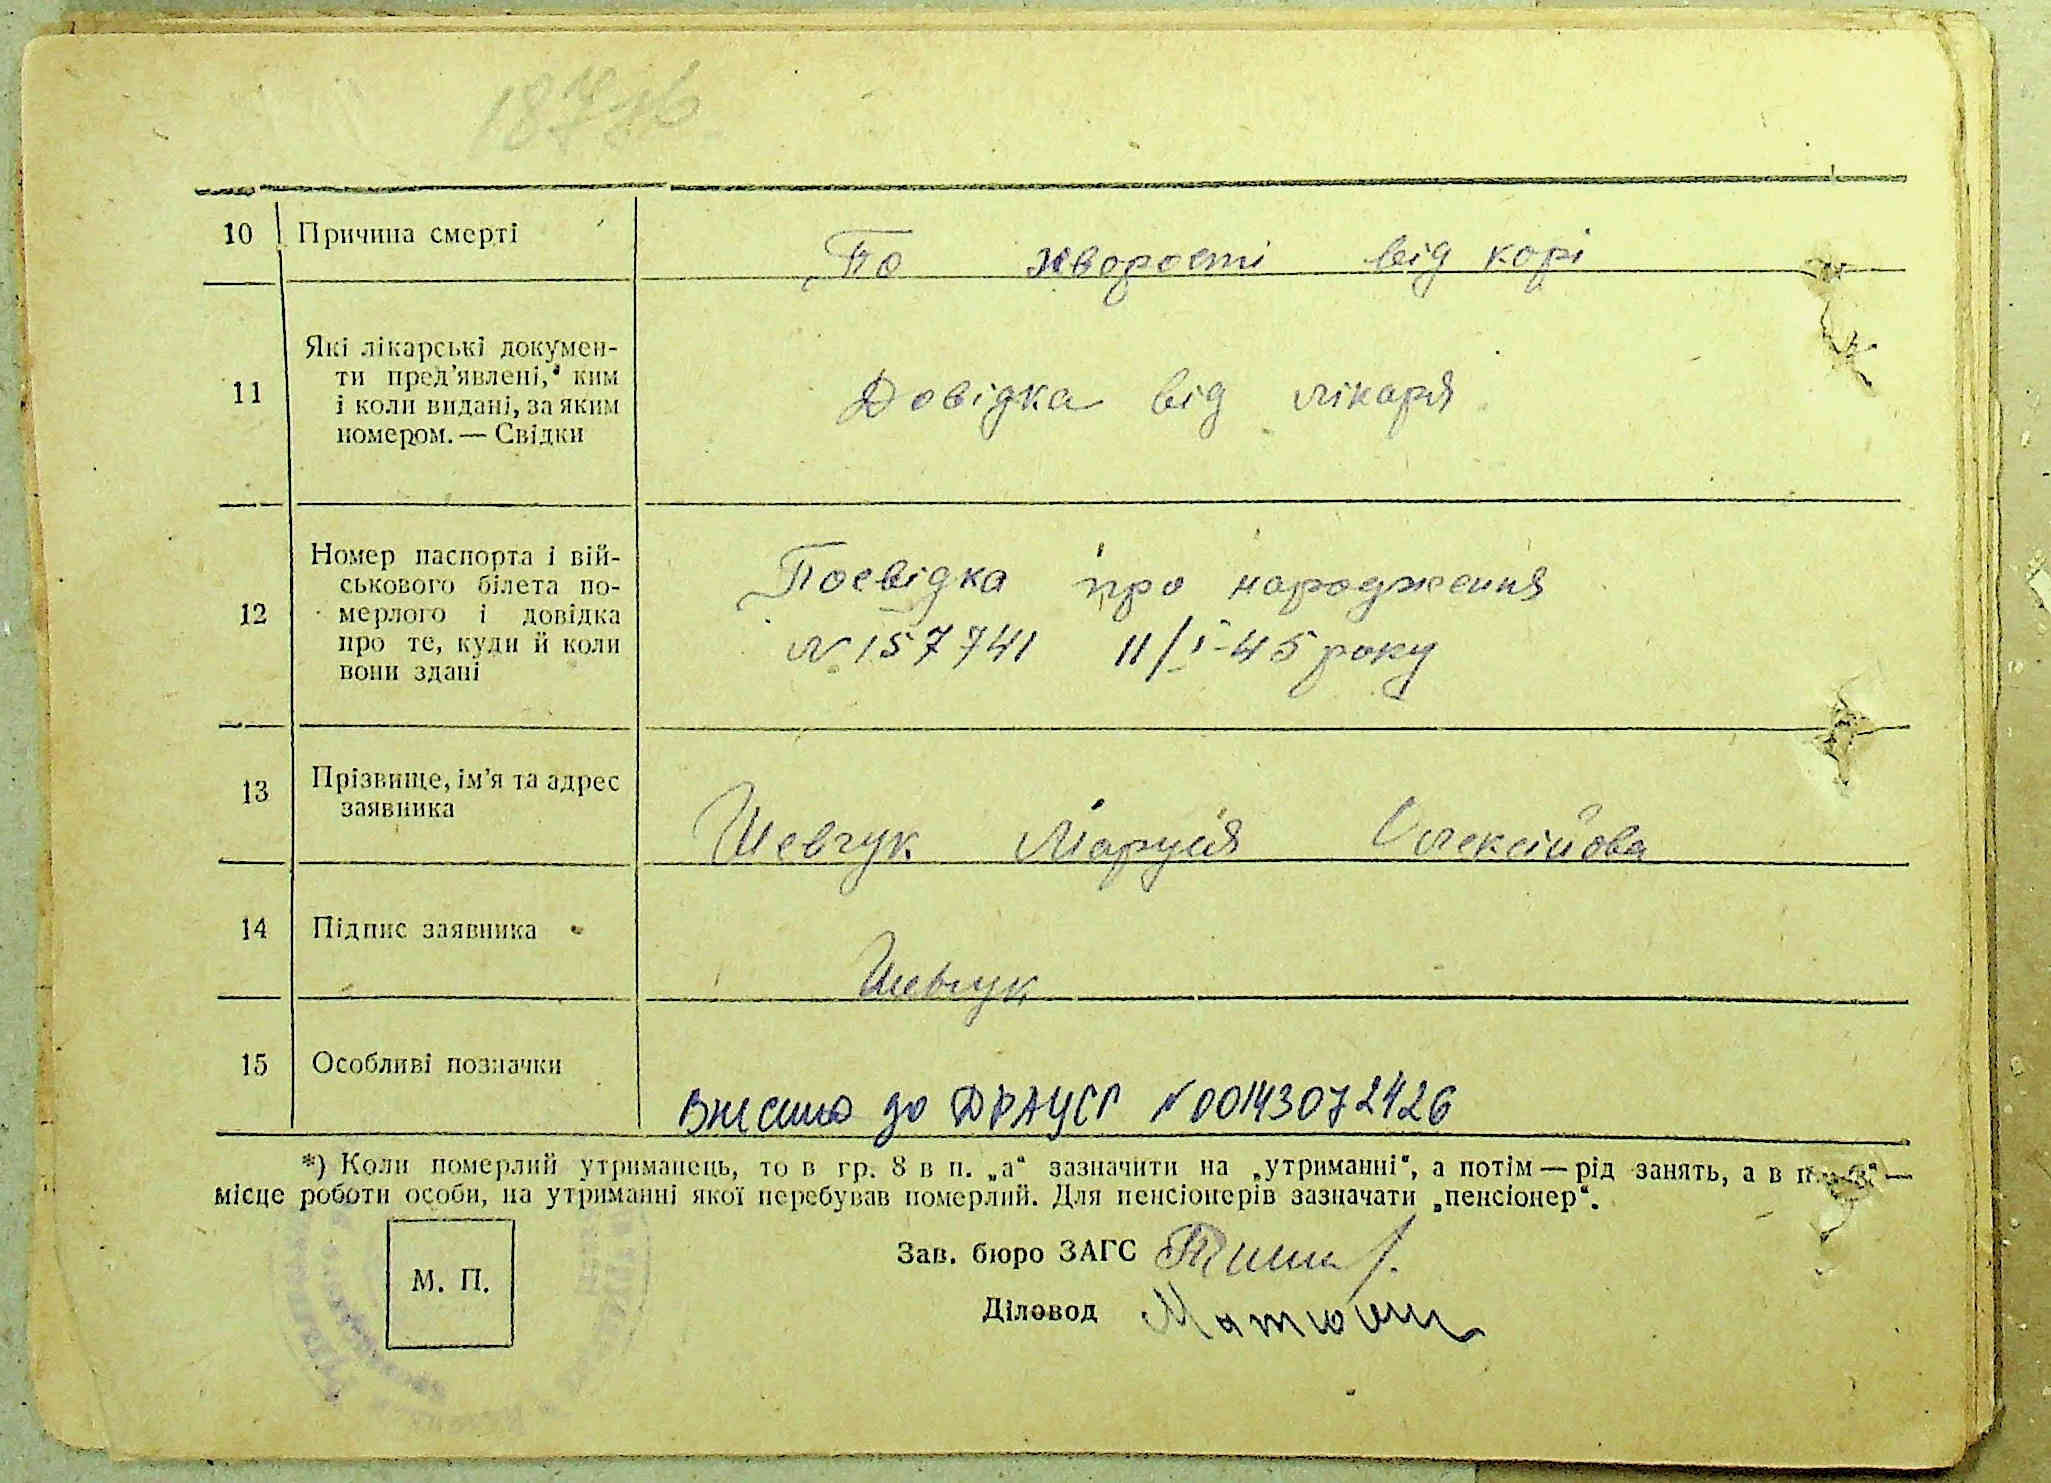 10 Причина смерті По хворості від корі
11 Які лікарські докумен-
ти пред'явлені, ким
і коли видані, за яким
номером. — Свідки
Довідка від лікаря
12 Номер паспорта і вій-
ськового білета по-
мерлого і довідка
про те, куди й коли
вони здані
Посвідка про народження
N 157741 11/I-45 року
13 Прізвище, ім'я та адрес
заявника
Шевчук Маруся Олексійова
14 Підпис заявника
Шевчук
15 Особливі позначки
Внесено до ДРАЦСГ N00143072426
*) Коли померлий утриманець, то в гр. 8 в п. „а“ зазначити на „утриманні“, а потім — рід занять, а в п. —
місце роботи особи, на утриманні якої перебував померлий. Для пенсіонерів зазначати „пенсіонер“.
М. П.
Зав. бюро ЗАГС
Діловод